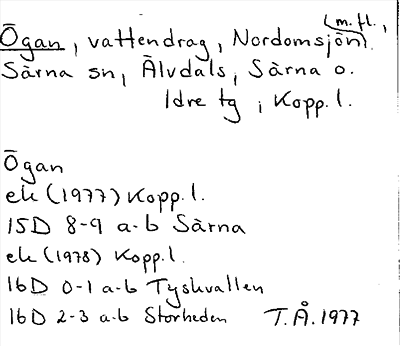 Ögan, vattendrag, Nordomsjön (m.fl.,
Särna sn, Älvdals, Särna o.
Idre tg i Kopp. l.
Ögan
ek (1977) Kopp. l.
15D 8-9 a-b Särna
ek (1978) Kopp. l.
16D 0-1 a-b Tyskvallen
16D 2-3 a-b Storheden T.Å. 1977